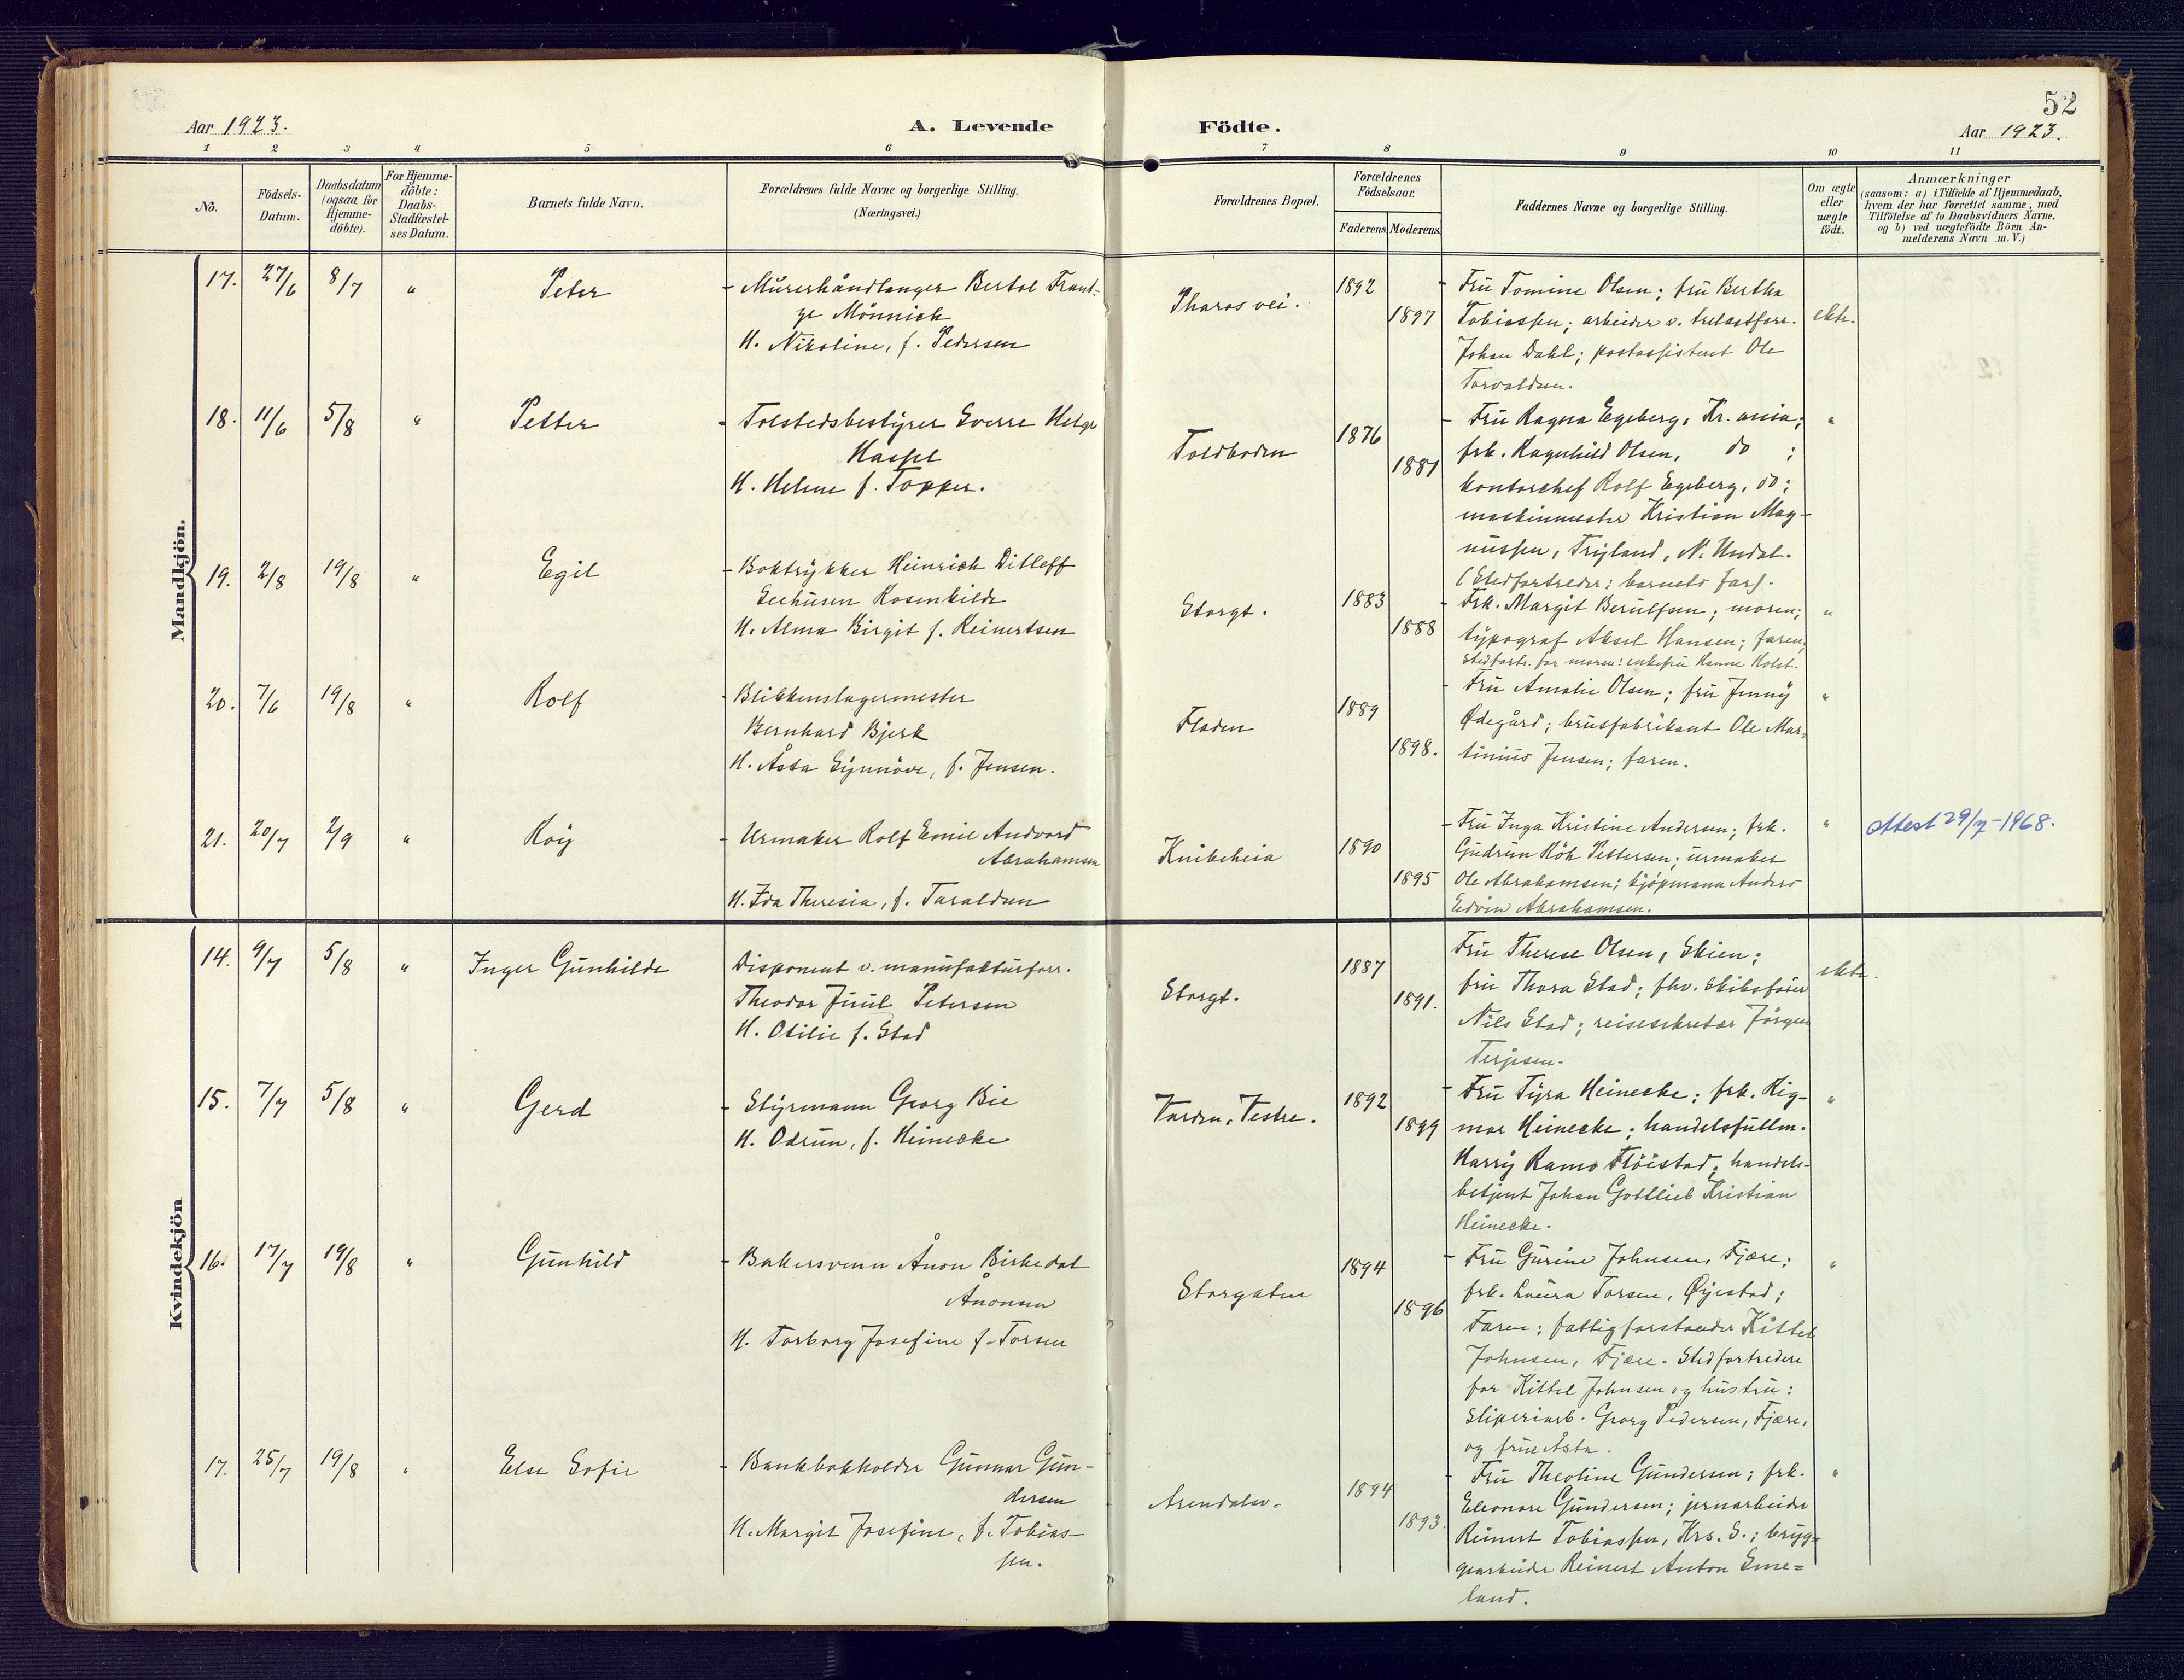 52
Aar 1923.
A. Levende
Födte.
Aar 1923.
1 2 3 4 5 6 7 8 9 10 11
No.
Födsels-Datum.
Daabsdatum (ogsaa for Hjemmedöbte).
For Hjemmedöbte: Daabs-Stadfæstelses Datum.
Barnets fulde Navn.
Forældrenes fulde Navne og borgerlige Stilling.
(Næringsvei.)
Forældrenes Bopæl.
Forældrenes Födselsaar.
Faderens Moderens
Faddernes Navne og borgerlige Stilling.
Om ægte eller uægte födt.
Anmærkninger
(saasom: a) i Tilfælde af Hjemmedaab,
hvem der har forrettet samme, med
Tilföielse af to Daabsvidners Navne.
og b) ved uægtefödte Börn An-
melderens Navn m. V.)
Mandkjön.
17. 27/6 8/7 " Peter
- Murerhåndlanger Bertol Frant-
ze Mönnich
H. Nikoline, f. Pedersen
Pharos vei.
1892
1897
- Fru Tomine Olsen; fru Bertha
Tobiassen; arbeider v. trelastforr.
Johan Dahl; postassistent Ole
Torvaldsen.
ekte.
18. 11/6 5/8 " Petter
- Tolstedsbestyrer Sverre Helge
Hassel
H. Helene f. Topper.
Toldboden
1876
1881
- Fru Ragna Egeberg, Kr.ania;
frk. Ragnhild Olsen, do ;
kontorchef Rolf Egeberg, do;
maskinmester Kristian Mag-
nussen, Tryland, N. Undal.
(Stedfortreder: barnets far).
"
19. 2/8 19/8 " Egil
- Boktrykker Heinrich Ditleff
Seehusen Rosenkilde
H. Alma Birgit f. Reinertsen
Storgt.
1883
1888
- Frk. Margit Berulfsen; moren;
typograf Aksel Hansen; faren;
stedfortr. for moren: enkefru Hanne Holst.
"
20. 7/6 19/8 " Rolf
- Blikkenslagermester
Bernhard Bjerk
H. Åsta Synnöve, f. Jensen.
Fladen
1889
1898.
- Fru Amalie Olsen; fru Jenny
Ødegård; brusfabrikant Ole Mar-
tinius Jensen; faren.
"
21. 20/7 2/9 " Roy
- Urmaker Rolf Emil Andvord
Abrahamsen
H. Ida Theresia, f. Taraldsen
Knibeheia
1890
1895
- Fru Inga Kristine Andersen; frk.
Gudrun Röh Pettersen; urmaker
Ole Abrahamsen; kjøpmann Anders
Edvin Abrahamsen.
"
Attest 29/7-1968.
Kvindekjön
14. 9/7 5/8 " Inger Gunhilde
Disponent v. manufakturforr.
Theodor Juul Petersen
H. Otilie f. Stad
Storgt.
1887
1891.
Fru Therese Olsen, Skien;
fru Thora Stad; fhv. skibsfører
Nils Stad; reisesekretær Jörgen
Terjesen.
ekte.
15. 7/7 5/8 " Gerd
- Styrmann Georg Bie
H. Odrun, f. Heinecke
Varden, Vestre.
1892
1899
- Fru Tyra Heinecke; frk. Rig-
mor Heinecke; handelsfullm.
Harry Ramo Flöistad; handels-
betjent Johan Gottlieb Kristian
Heinecke.
"
16. 17/7 19/8 " Gunhild
- Bakersvenn Ånon Birkedal
Ånonsen
H. Torborg Josefine f. Torsen
Storgaten
1894
1896
- Fru Gurine Johnsen, Fjære;
frk. Laura Torsen, Øyestad;
Faren; fattigforstander Kittel
Johnsen, Fjære. Stedfortredere
for Kittel Johnsen og hustru:
sliperiarb. Georg Pedersen, Fjære,
og frue Åsta.
"
17. 25/7 19/8 " Else Sofie
- Bankbokholder Gunnar Gun-
dersen
H. Margit Josefine, f. Tobias-
sen.
Arendalsv.
1894
1893.
- Fru Theoline Gundersen; frk.
Eleonore Gundersen; jernarbeider
Reinert Tobiassen, Krs. S.; bryg-
gearbeider Reinert Anton Eme-
land.
"